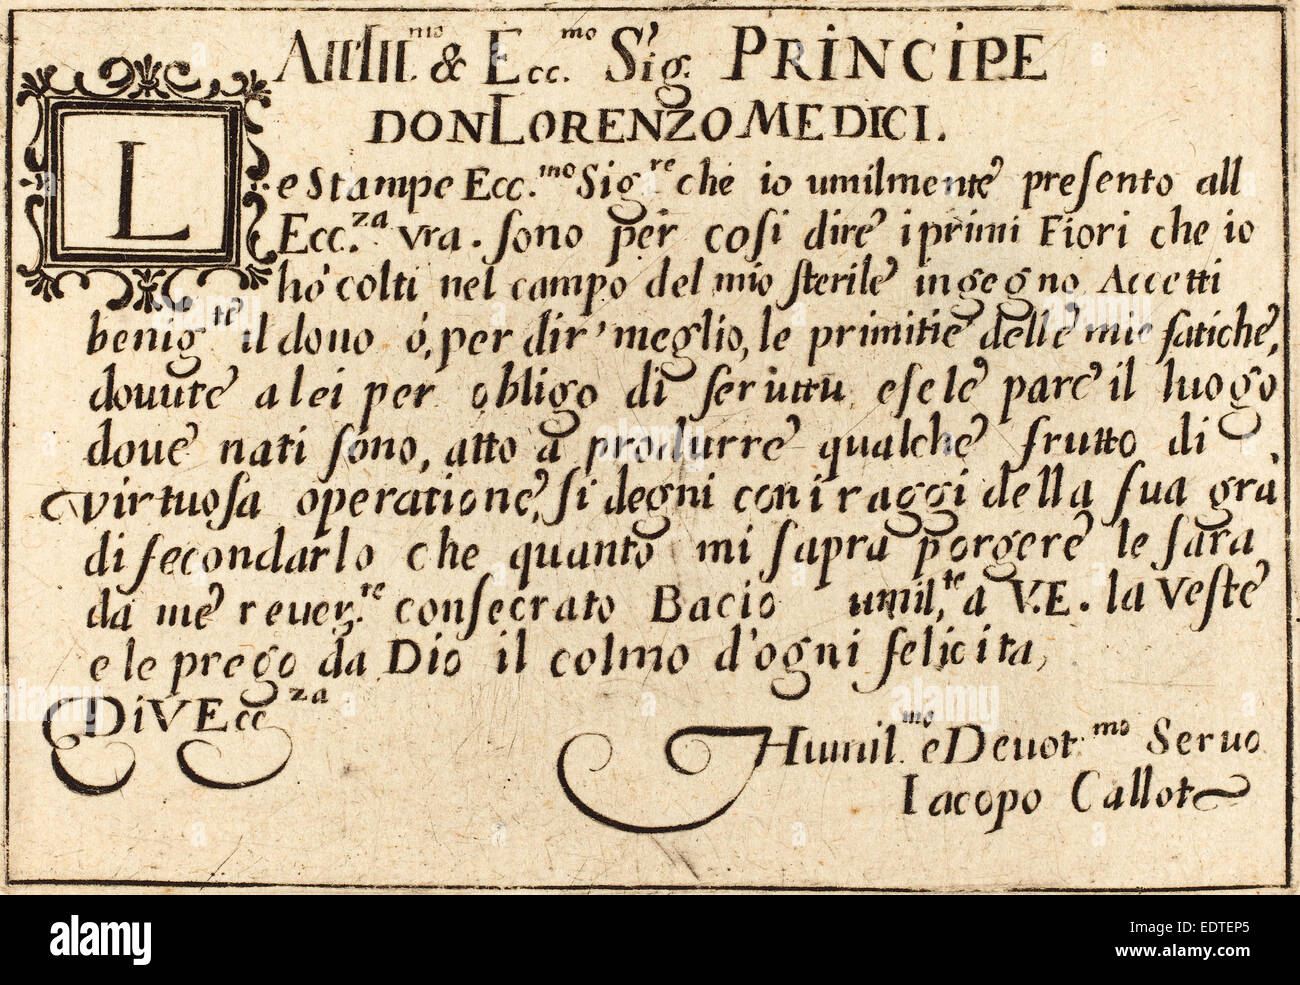 All'Ill.mo & Ecc.mo Sig. PRINCIPE
DON LORENZO MEDICI.
Le Stampe Ecc.mo Sig.re che io umilmente preſento all
Ecc.za vra. ſono per coſi dire i primi Fiori che io
ho' colti nel campo del mio ſterile ingegno Accetti
benig.te il dono ó, per dir' meglio, le primitie delle mie fatiche,
douute a lei per obligo di ſeruitu e se le pare il luogo
doue nati ſono, atto a produrre qualche frutto di
virtuoſa operatione, ſi degni con i raggi della ſua gra
di fecondarlo che quanto mi ſapra porgere le ſara
da me reuer.te conſecrato Bacio umil.te a V.E. la Veſte
e le prego da Dio il colmo d'ogni felicita,
Di V Ecc za
Humil.mo e Deuot.mo Seruo
Iacopo Callot
alamy
alamy
alamy
alamy
alamy
alamy
alamy
Image ID: EDTEP5
www.alamy.com